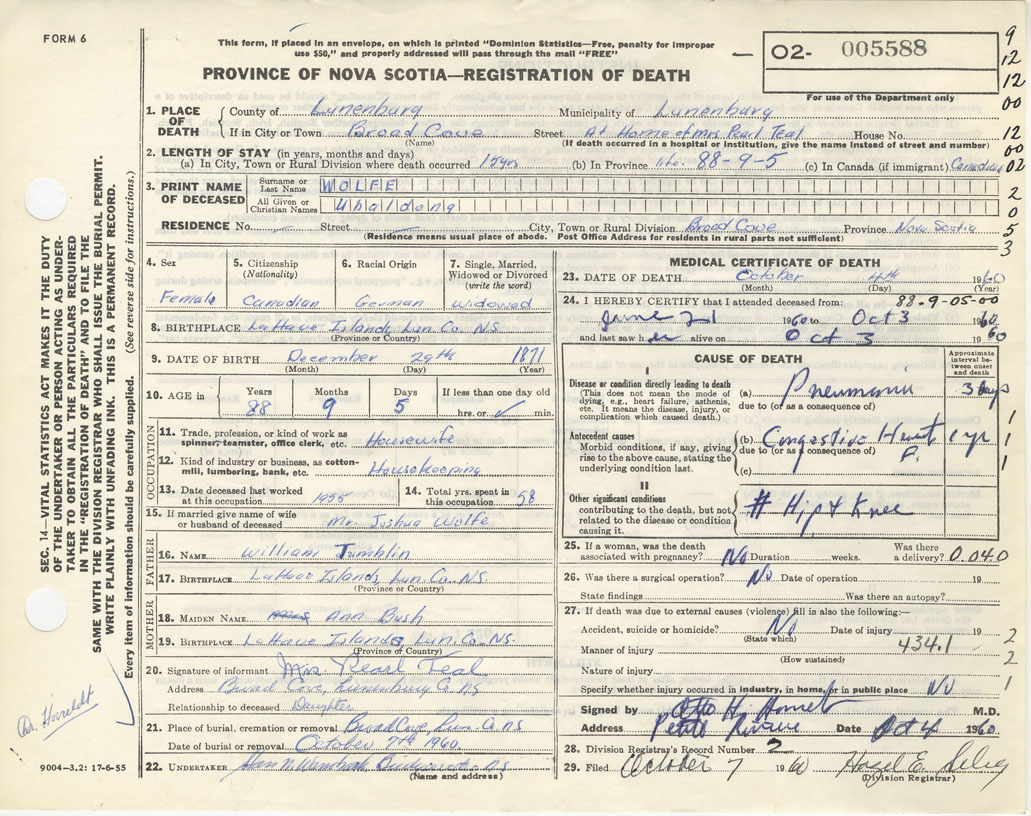 FORM 6
This form, if placed in an envelope, on which is printed "Dominion Statistics—Free, penalty for improper
use $50," and properly addressed will pass through the mail "FREE"
PROVINCE OF NOVA SCOTIA—REGISTRATION OF DEATH
02- 005588
For use of the Department only
9
12
12
00
12
00
02
2
0
5
3
1. PLACE OF DEATH County of Lunenburg Municipality of Lunenburg
If in City or Town Broad Cove Street At Home of Mrs Pearl Teal House No.
(Name) (If death occurred in a hospital or institution, give the name instead of street and number)
2. LENGTH OF STAY (in years, months and days)
(a) In City, Town or Rural Division where death occurred 15 yrs. (b) In Province life. 88-9-5 (c) In Canada (if immigrant) Canadian
3. PRINT NAME OF DECEASED Surname or Last Name WOLFE
All Given or Christian Names Ubaldena
RESIDENCE No. Street City, Town or Rural Division Broad Cove Province Nova Scotia
(Residence means usual place of abode. Post Office Address for residents in rural parts not sufficient)
4. Sex Female
5. Citizenship (Nationality) Canadian
6. Racial Origin German
7. Single, Married, Widowed or Divorced (write the word) Widowed
8. BIRTHPLACE LaHave Islands, Lun. Co. N.S.
(Province or Country)
9. DATE OF BIRTH December 29th 1871
(Month) (Day) (Year)
10. AGE in Years 88 Months 9 Days 5 If less than one day old hrs. or min.
OCCUPATION
11. Trade, profession, or kind of work as spinner, teamster, office clerk, etc. Housewife
12. Kind of industry or business, as cotton-mill, lumbering, bank, etc. Housekeeping
13. Date deceased last worked at this occupation. 1955
14. Total yrs. spent in this occupation. 58
15. If married give name of wife or husband of deceased Mr. Joshua Wolfe
FATHER
16. NAME William Tumblin
17. BIRTHPLACE LaHave Islands, Lun. Co. N.S.
(Province or Country)
MOTHER
18. MAIDEN NAME Ann Bush
19. BIRTHPLACE LaHave Islands, Lun. Co. N.S.
(Province or Country)
20. Signature of informant Mrs. Pearl Teal
Address Broad Cove, Lunenburg Co. N.S.
Relationship to deceased Daughter
21. Place of burial, cremation or removal Broad Cove, Lun. Co. N.S.
Date of burial or removal October 7th 1960.
22. UNDERTAKER N.S.
(Name and address)
MEDICAL CERTIFICATE OF DEATH
23. DATE OF DEATH October 4th 1960
(Month) (Day) (Year)
24. I HEREBY CERTIFY that I attended deceased from: 88-9-05-00
June 21 1960 to Oct 3 1960
and last saw her alive on Oct 3 1960
CAUSE OF DEATH
Approximate interval between onset and death
I
Disease or condition directly leading to death
(This does not mean the mode of dying, e.g., heart failure, asthenia, etc. It means the disease, injury, or complication which caused death.)
(a) Pneumonia 3 days
due to (or as a consequence of)
Antecedent causes
Morbid conditions, if any, giving rise to the above cause, stating the underlying condition last.
(b) Congestive Heart F. 1 yr
due to (or as a consequence of)
(c)
1
1
1
II
Other significant conditions
contributing to the death, but not related to the disease or condition causing it.
# Hip & Knee
25. If a woman, was the death associated with pregnancy? No Duration weeks. Was there a delivery? 0.040
26. Was there a surgical operation? No Date of operation 19
State findings Was there an autopsy?
27. If death was due to external causes (violence) fill in also the following:—
Accident, suicide or homicide? No Date of injury 19
(State which)
Manner of injury 434.1
(How sustained)
Nature of injury
Specify whether injury occurred in industry, in home, or in public place No
2
2
1
Signed by M.D.
Address Petite Riviere Date Oct 4 1960
28. Division Registrar's Record Number 2
29. Filed October 7 1960 Hazel E.
(Division Registrar)
SEC. 14—VITAL STATISTICS ACT MAKES IT THE DUTY
OF THE UNDERTAKER OR PERSON ACTING AS UNDER-
TAKER TO OBTAIN ALL THE PARTICULARS REQUIRED
IN THE "REGISTRATION OF DEATH" AND TO FILE THE
SAME WITH THE DIVISION REGISTRAR WHO SHALL ISSUE THE BURIAL PERMIT.
WRITE PLAINLY WITH UNFADING INK. THIS IS A PERMANENT RECORD.
Every item of information should be carefully supplied. (See reverse side for instructions.)
9004-3.2: 17-6-55